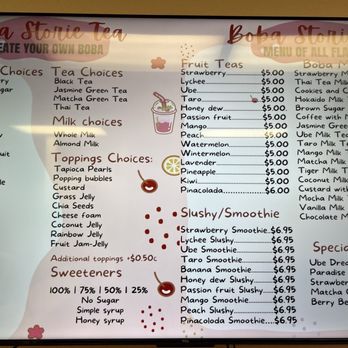 a Storie Tea
EATE YOUR OWN BOBA
Choices
Tea Choices
Black Tea
Jasmine Green Tea
Matcha Green Tea
Thai Tea
Milk choices
Whole Milk
Almond Milk
Toppings Choices:
Tapioca Pearls
Popping bubbles
Custard
Grass Jelly
Chia Seeds
Cheese foam
Coconut Jelly
Rainbow Jelly
Fruit Jam-Jelly
Additional toppings +$0.50c
Sweeteners
100% | 75% | 50% | 25%
No Sugar
Simple syrup
Honey syrup
Boba Storie
MENU OF ALL FLA
Fruit Teas
Strawberry $5.00
Lychee $5.00
Ube $5.00
Taro $5.00
Honey dew $5.00
Passion fruit $5.00
Mango $5.00
Peach $5.00
Watermelon $5.00
Wintermelon $5.00
Lavender $5.00
Pineapple $5.00
Kiwi $5.00
Pinacolada $6.00
Slushy/Smoothie
Strawberry Smoothie $6.95
Lychee Slushy $6.95
Ube Smoothie $6.95
Taro Smoothie $6.95
Banana Smoothie $6.95
Honey dew Slushy $6.95
Passion fruit Slushy $6.95
Mango Smoothie $6.95
Peach Slushy $6.95
Pinacoloda Smoothie $6.95
Boba M
Thai Milk
Strawberry Mi
Cookies and C
Hokaido Milk
Brown Sugar
Coffee with M
Jasmine Gree
Ube Milk Te
Taro Milk T
Mango Milk
Matcha Milk
Tiger Milk T
Coconut Milk
Custard with
Mocha Milk
Vanilla Milk
Chocolate M
Specia
Ube Drea
Paradise
Strawber
Matcha
Berry Be